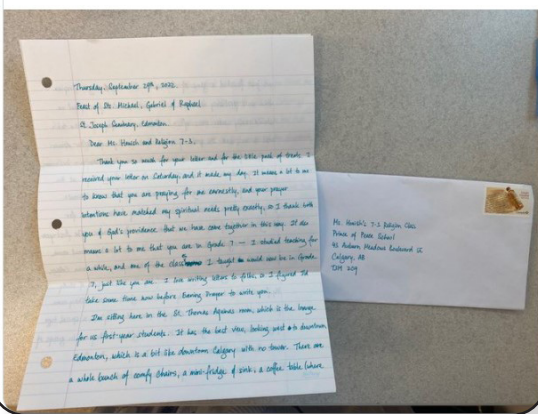 Thursday, September 29th, 2022.
Feast of Sts. Michael, Gabriel & Raphael
St Joseph Seminary, Edmonton
Dear Mr. and Religion 7-2,
Thank you so much for your letter and for the little pack of treats. I
received your letter on Saturday, and it made my day. It means a lot to me
to know that you are praying for me earnestly, and your prayer
intentions have matched my spiritual needs pretty exactly, so I thank both
you & God's providence that we have come together in this way. It also
means a lot to me that you are in Grade 7 — I studied teaching for
a while, and one of the classes I taught would now be in Grade
7, just like you are. I love writing letters to folks, so I figured I'd
take some time now before Evening Prayer to write you.
I'm sitting here in the St. Thomas Aquinas room, which is the lounge
for us first-year students. It has the best view, looking west to downtown
Edmonton, which is a bit like downtown Calgary with no tower. There are
a whole bunch of comfy chairs, a mini-fridge & sink, a coffee table (where
7-2 Religion Class
Prince of Peace School
Auburn Meadows Boulevard SE
Calgary, AB